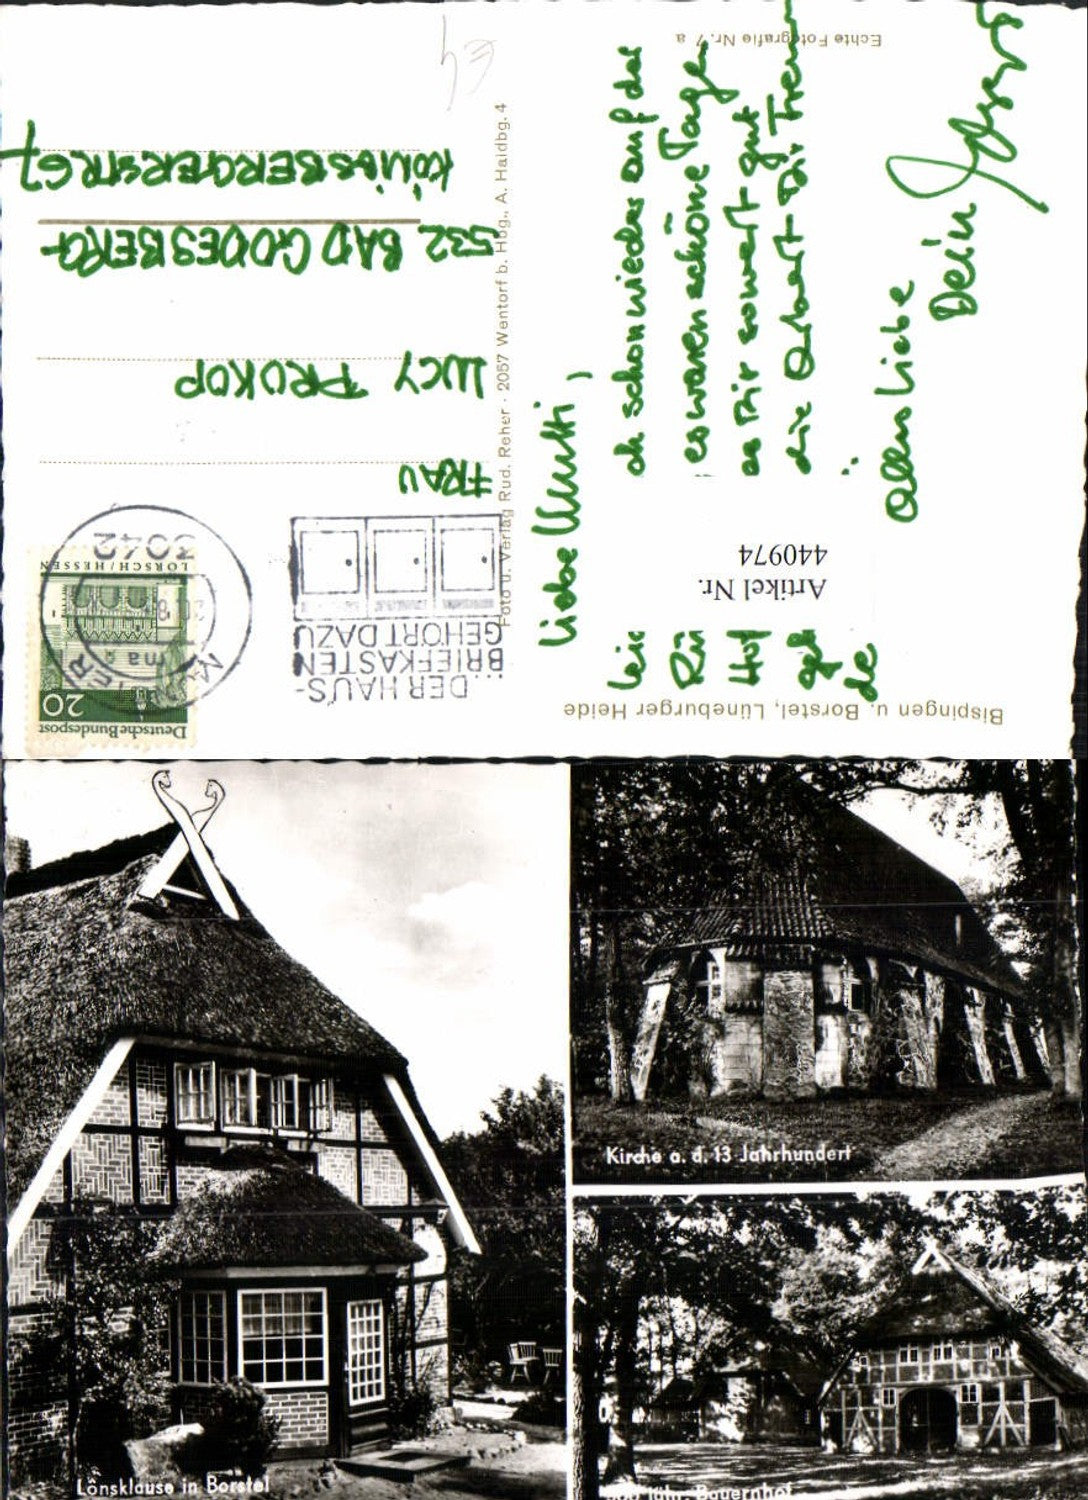 Bispingen u. Borstel, Lüneburger Heide
Liebe Mutti,
ich schon wieder auf der
es waren schöne Tage
Dir soweit gut
die
Alles Liebe
Dein
Artikel Nr.
440974
Echte Fotografie Nr. 7 a
Foto u. Verlag Rud. Reher · 2057 Wentorf b. Hbg., A. Haidbg. 4
...DER HAUS-
BRIEFKASTEN
GEHÖRT DAZU
Deutsche Bundespost
20
LORSCH/HESSEN
3042
FRAU
LUCY PROKOP
532 BAD GODESBERG
KÖNIGSBERGERSTR. 67
Lönsklause in Borstel
Kirche a. d. 13 Jahrhundert
jähr. Bauernhof